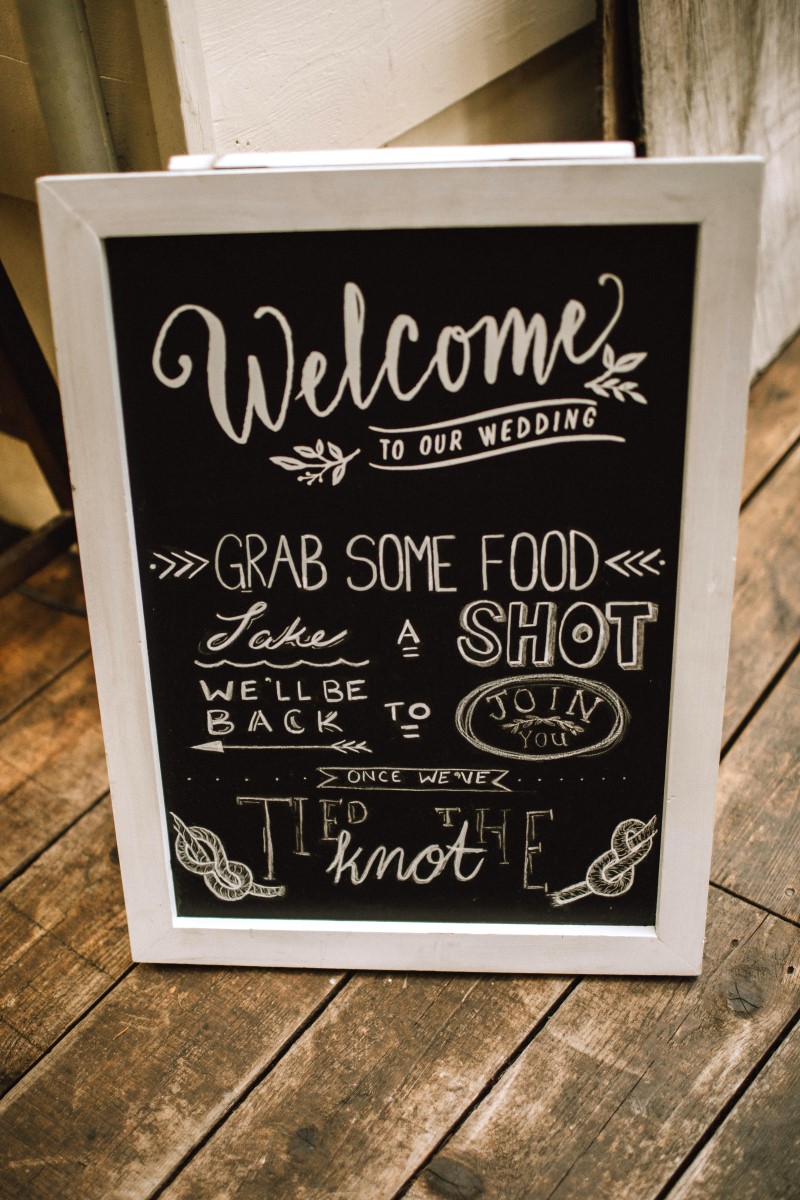 Welcome
TO OUR WEDDING
GRAB SOME FOOD
Take A SHOT
WE'LL BE
BACK TO JOIN
YOU
ONCE WE'VE
TIED THE
knot